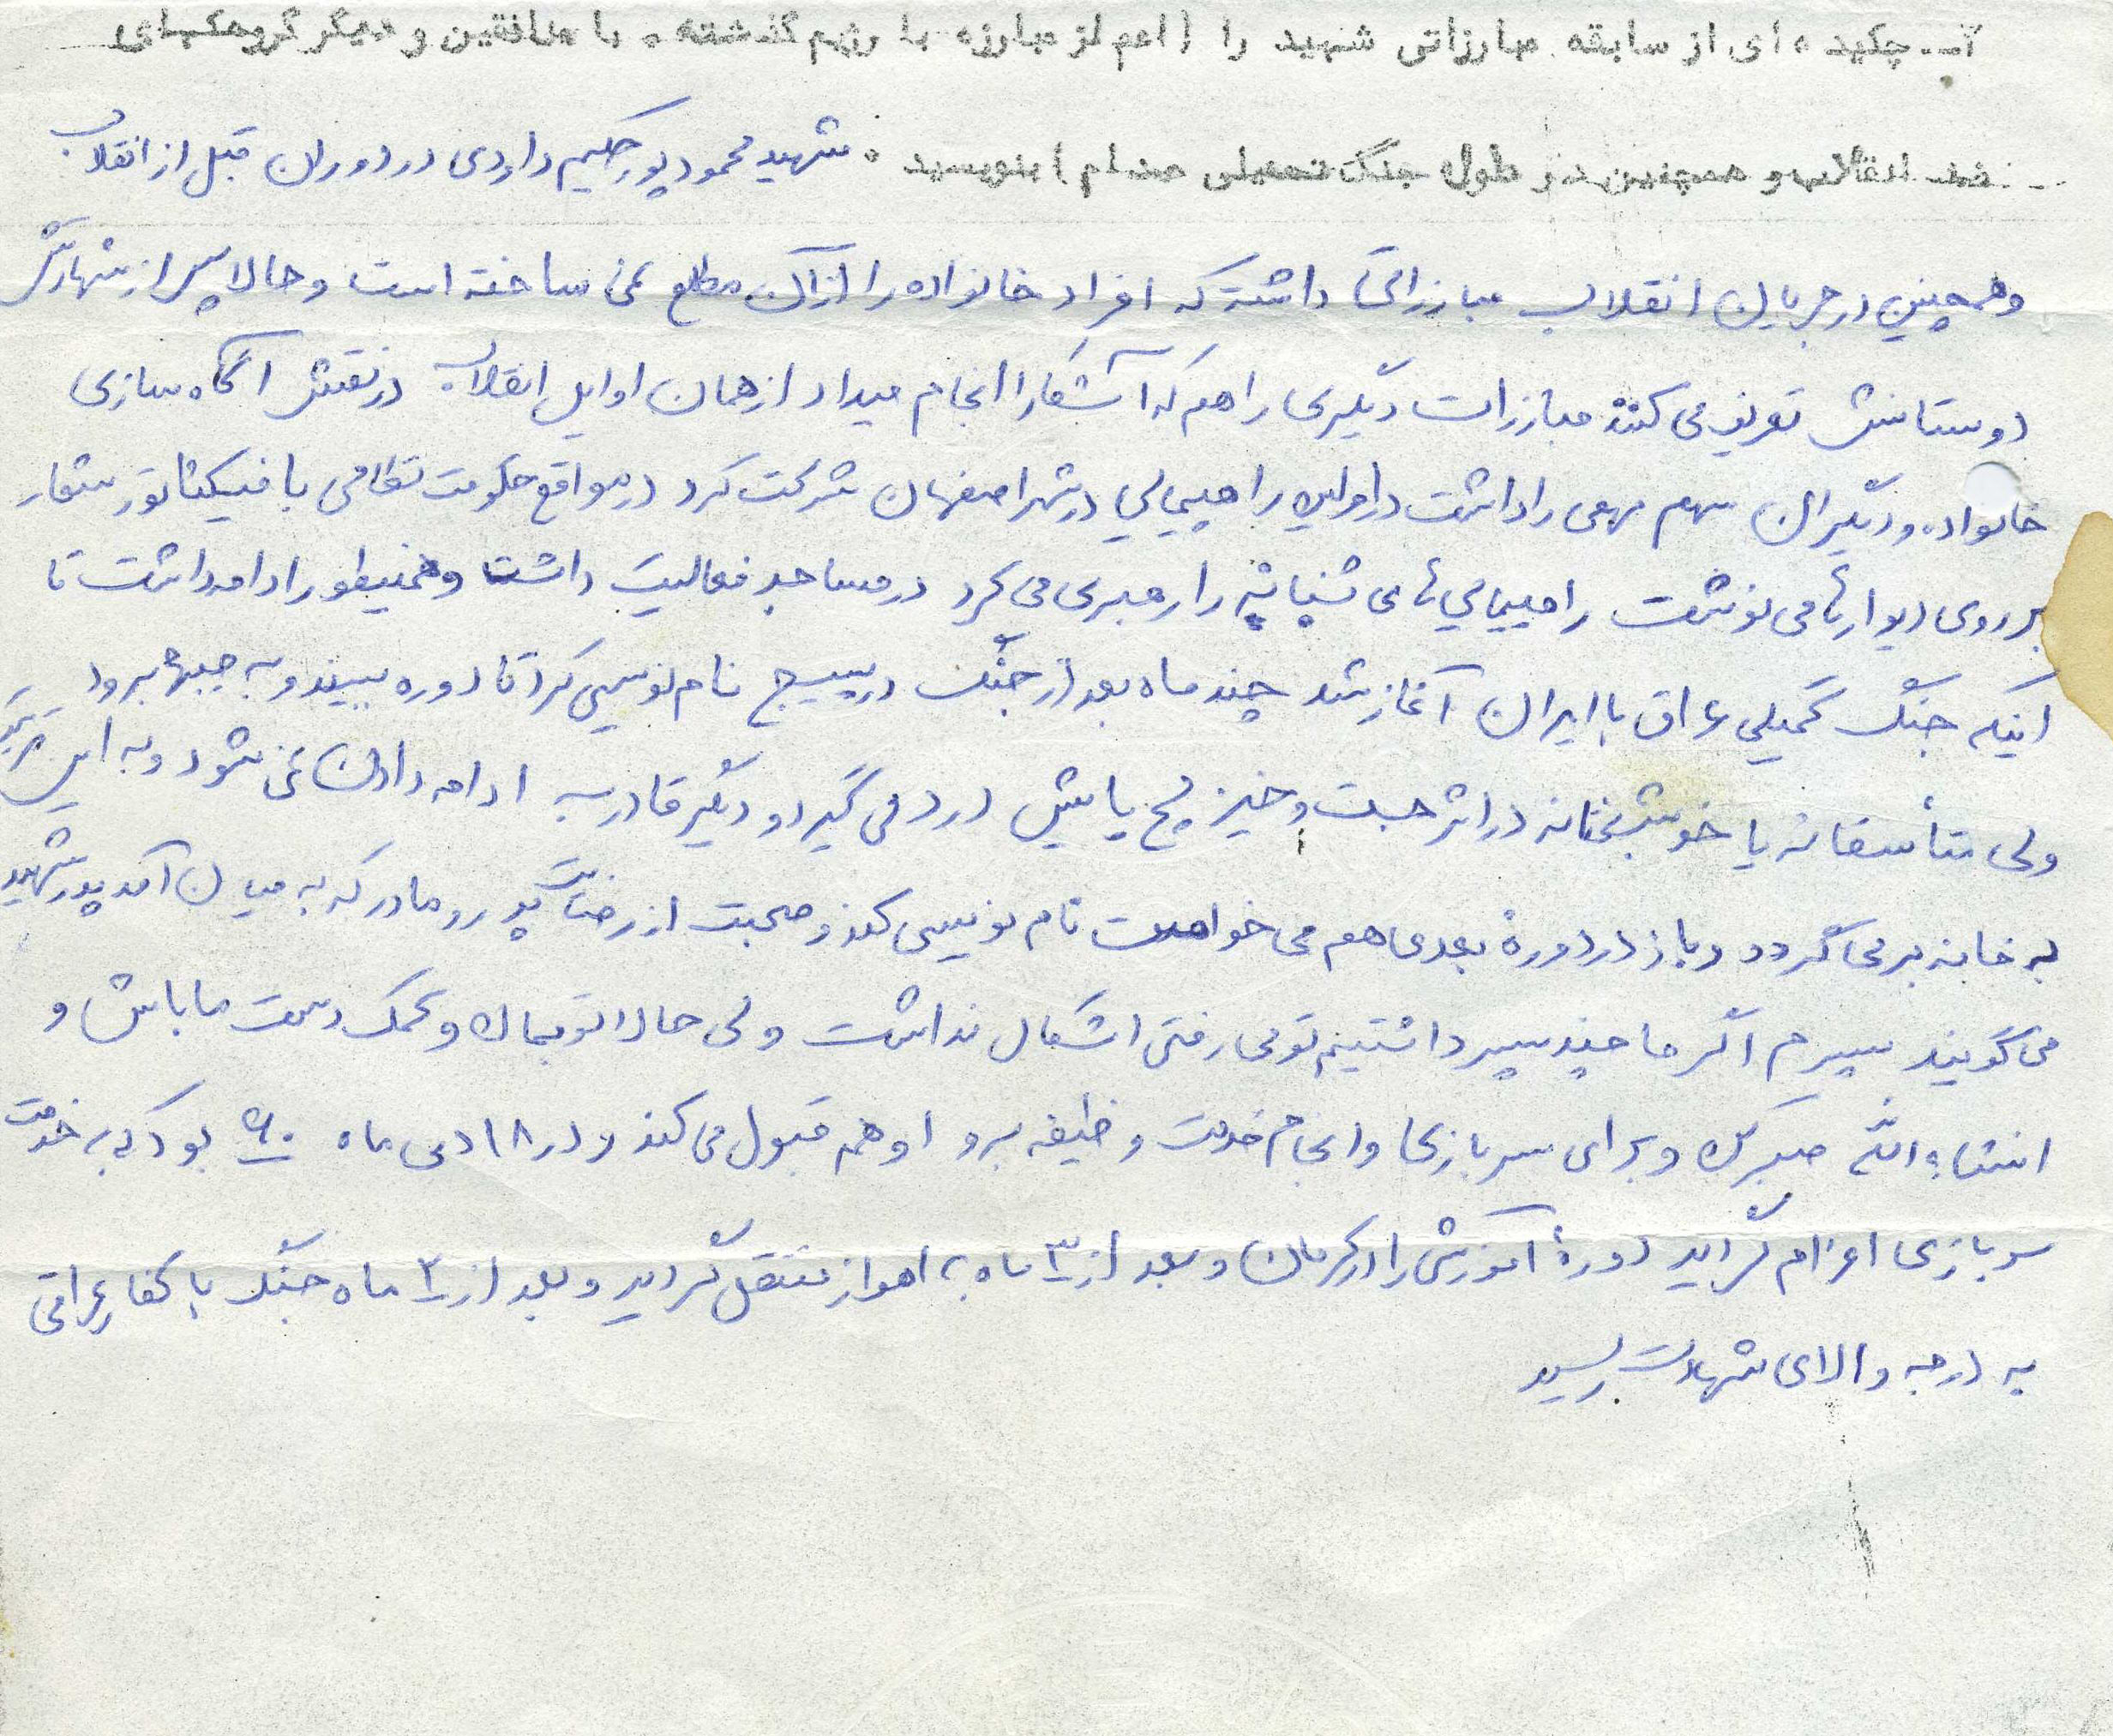 آ- چکیده ای از سابقه مبارزاتی شهید را (اعم از مبارزه با رژیم گذشته، با منافقین و دیگر گروهکهای
ضد انقلاب و همچنین در طول جنگ تحمیلی صدام) بنویسید . شهید محمود پور حکیم داودی در دوران قبل از انقلاب
و همچنین در جریان انقلاب مبارزاتی داشته که افراد خانواده را از آن مطلع نمی ساخته است و حالا پس از شهادتش
دوستانش تعریف می کنند مبارزات دیگری را هم که آشکارا انجام میداد از همان اوایل انقلاب در نقش آگاه سازی
خانواده و دیگران سهم مهمی را داشت در اولین راهپیمایی در شهر اصفهان شرکت کرد در مواقع حکومت نظامی با شعار
بر روی دیوارها می نوشت راهپیمایی های شبانه را رهبری می کرد در مساجد فعالیت داشت و همینطور ادامه داشت تا
اینکه جنگ تحمیلی عراق با ایران آغاز شد چند ماه بعد از جنگ در بسیج نام نویسی کرد تا دوره ببیند و به جبهه برود
ولی متأسفانه یا خوشبختانه در اثر جست و خیز مچ پایش درد می گیرد و دیگر قادر به ادامه دادن نمی شود و به این ترتیب
به خانه برمی گردد و باز در دورهٔ بعدی هم می خواست نام نویسی کند و صحبت از رضایت پدر و مادر که به میان آمد پدر شهید
می گویند پسرم اگر ما چند پسر داشتیم تو می رفتی اشکال نداشت ولی حالا تو بمان و کمک دست ما باش و
انشاءالله صبر کن و برای سربازی و انجام خدمت وظیفه برو او هم قبول می کند و در ۱۸ دی ماه ۶۰ بود که به خدمت
سربازی اعزام گردید دورهٔ آموزش را در کرمان و بعد از ۳ ماه به اهواز منتقل گردید و بعد از ۲ ماه جنگ با کفار عراقی
به درجه والای شهادت رسید